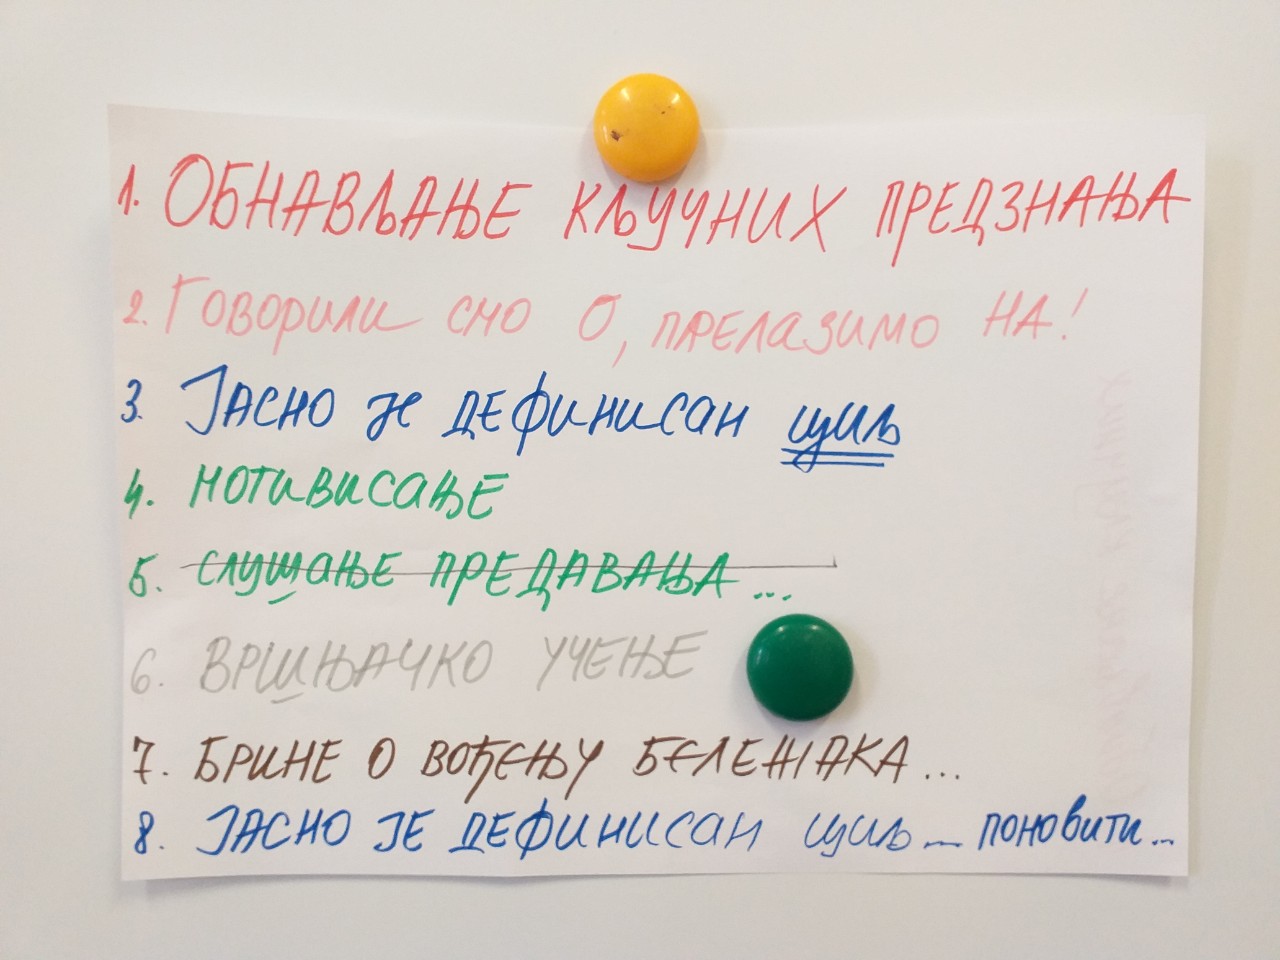 1. ОБНАВЉАЊЕ КЉУЧНИХ ПРЕДЗНАЊА
2. Говорили смо о, прелазимо на!
3. Јасно је дефинисан циљ
4. мотивисање
5. слушање предавања...
6. Вршњачко учење
7. Брине о вођењу бележака...
8. Јасно је дефинисан циљ... поновити...